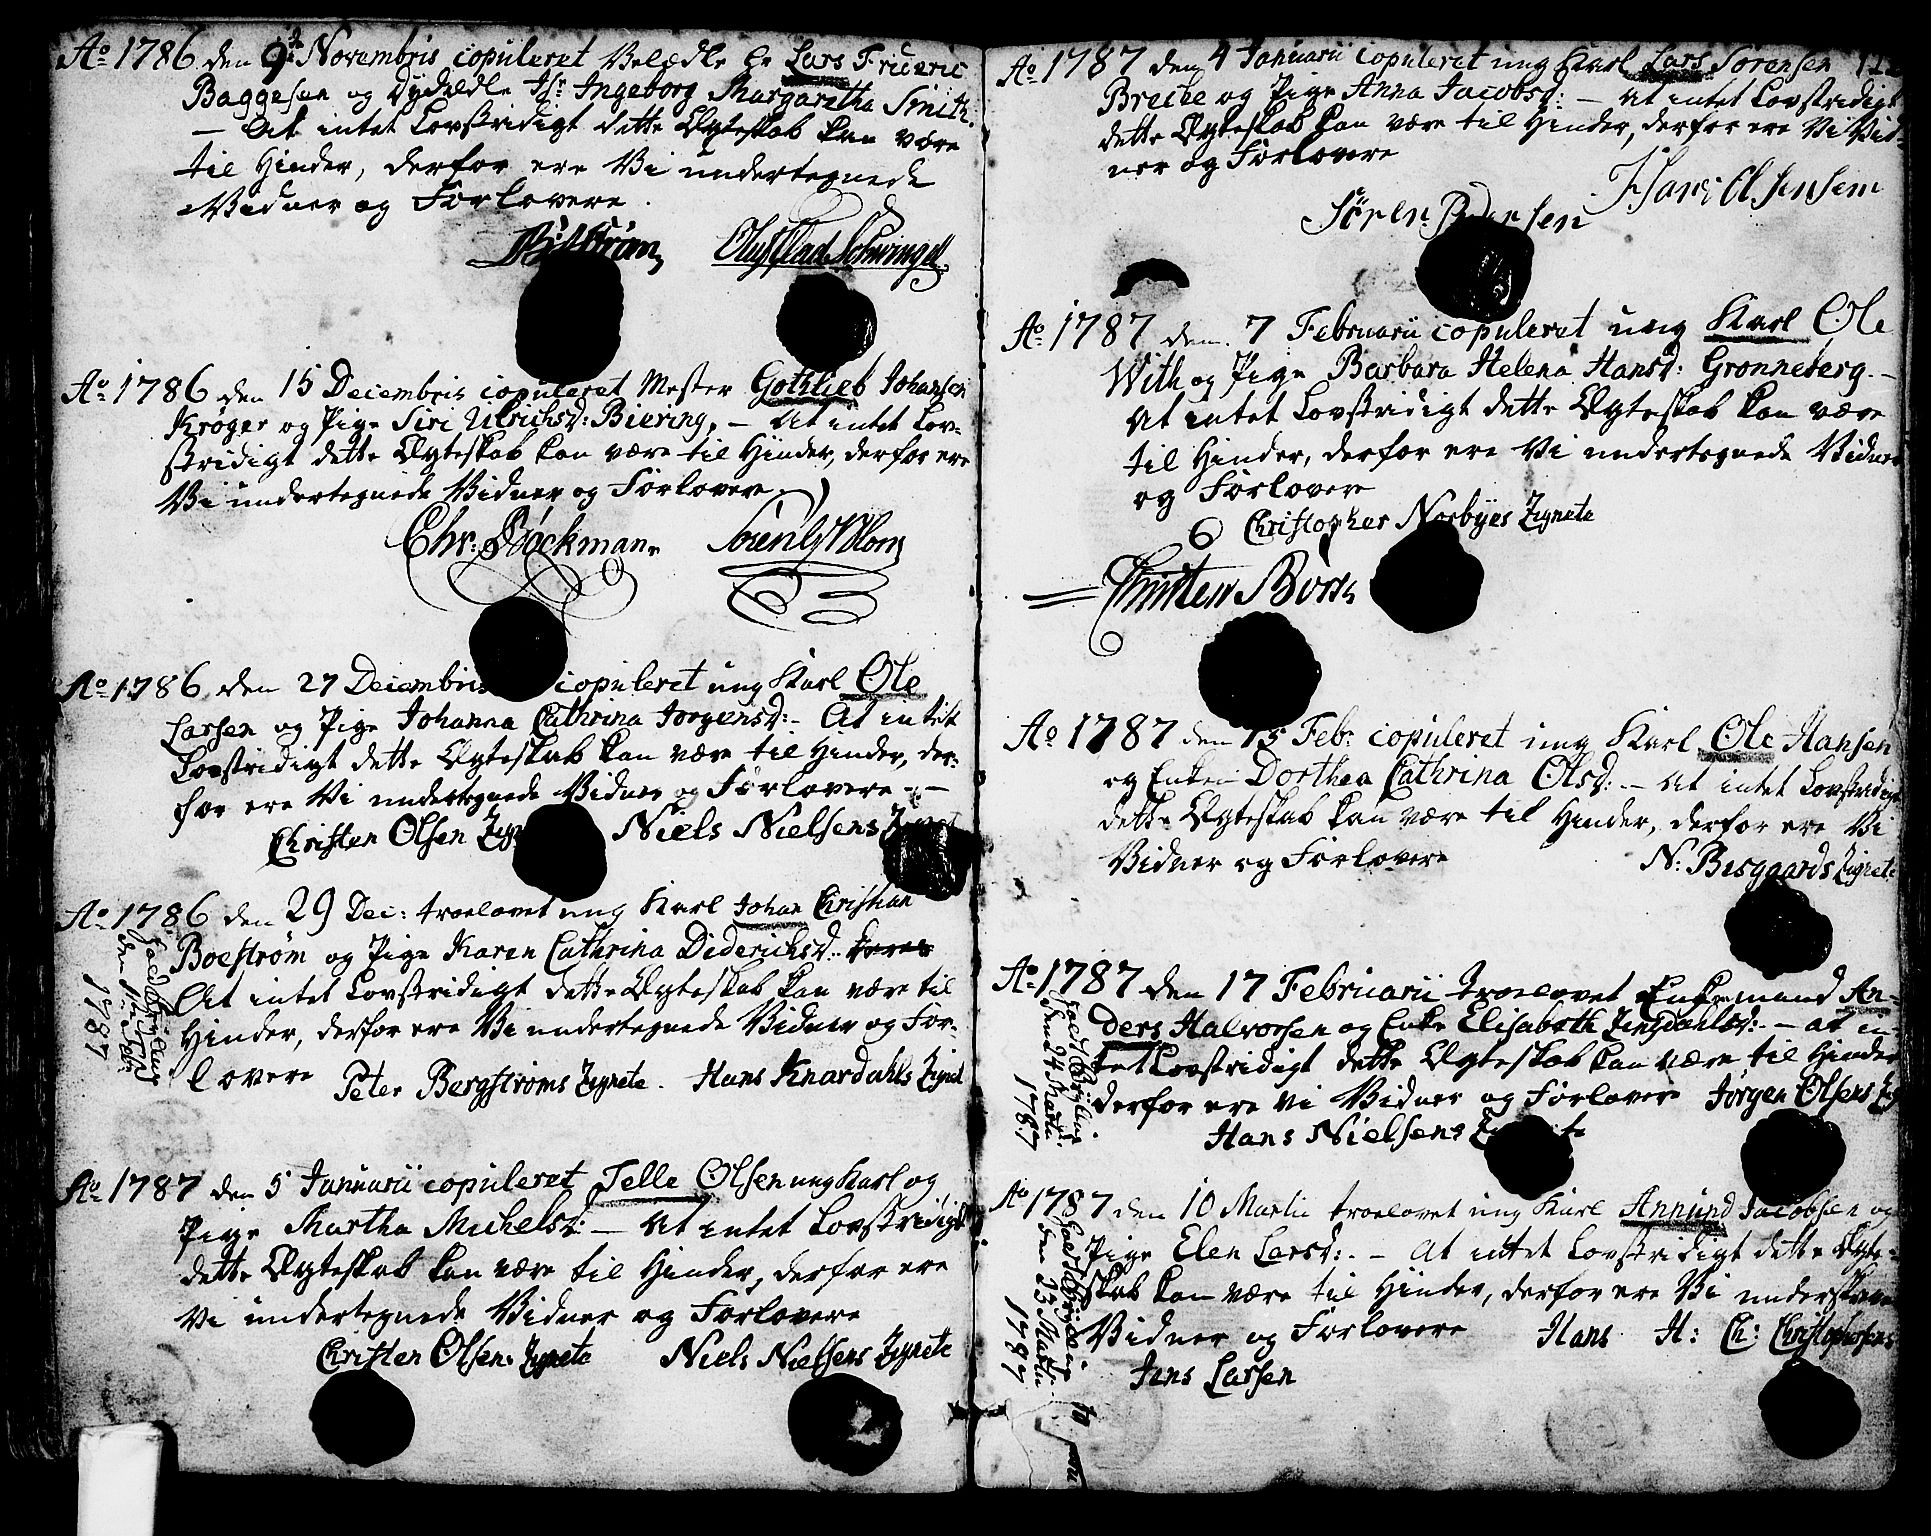 Ao 1786 den 9de Novembris copuleret Velædle Hr Lars Frideric
Baggesen og Dydædle Jfr. Ingeborg Margaretha Smith.
– At intet Lovstridigt dette Ægteskab kan være
til Hinder, derfor ere Vi undertegnede
Vidner og Forlovere.
Ao 1786 den 15 Decembris copuleret Mester Gothlieb Johansen
Krøger og Pige Siri Ulrichsd: Biering, – At intet Lov-
stridigt dette Ægteskab kan være til Hinder, derfor ere
Vi undertegnede Vidner og Forlovere.
Chr: Böckman
Ao 1786 den 27 Decembris copuleret ung Karl Ole
Larsen og Pige Johanna Cathrina Jørgensd: – At intet
Lovstridigt dette Ægteskab kan være til Hinder, der-
for ere Vi undertegnede Vidner og Forlovere –
Christen Olsen Niels Nielsens
Ao 1786 den 29 Dec: troelovet ung Karl Johan Christian
Boestrøm og Pige Karen Cathrina Diderichsd:
At intet Lovstridigt dette Ægteskab kan være til
Hinder, derfor ere Vi undertegnede Vidner og For-
lovere Peter Bergstrøms Zignete. Hans Knardahls Zignet
1787
Ao 1787 den 5 Januarii copuleret Jelle Olsen ung Karl og
Pige Martha Michelsd: – At intet Lovstridigt
dette Ægteskab kan være til Hinder, derfor ere
Vi undertegnede Vidner og Forlovere
Christen Olsens Zignete Niels Nielsens Zignete
Ao 1787 den 4 Januarii copuleret ung Karl Lars Sørensen
og Pige Anna Jacobsd: – At intet Lovstridigt
dette Ægteskab kan være til Hinder, derfor ere Vi Vid-
ner og Forlovere
Ao 1787 den 7 Februarii copuleret ung Karl Ole
With og Pige Barbara Helena Hansd: Grønneberg. –
At intet Lovstridigt dette Ægteskab kan være
til Hinder, derfor ere Vi undertegnede Vidner
og Forlovere
Christopher Norbyes Zignete
Ao 1787 den 15 Febr: copuleret ung Karl Ole Hansen
og Enken Dorthea Cathrina Olsd: – At intet Lovstridigt
dette Ægteskab kan være til Hinder, derfor ere Vi
Vidner og Forlovere N: Besgaards Zignete
Ao 1787 den 17 Februarii troelovet Enkemand An-
ders Halvorsen og Enke Elisabeth – at in-
tet Lovstridigt dette Ægteskab kan være til Hinder
derfor ere Vi Vidner og Forlovere Jørgen Olsens
Hans Nielsens
holdt Brÿllup
den 24 Martii
1787
Ao 1787 den 10 Martii troelovet ung Karl Annund Jacobsen og
Pige Elen Larsd: – At intet Lovstridigt dette Ægte-
skab kan være til Hinder, derfor ere Vi underskrevne
Vidner og Forlovere Hans H: Ch: Christophersens
Jens Larsen
1787